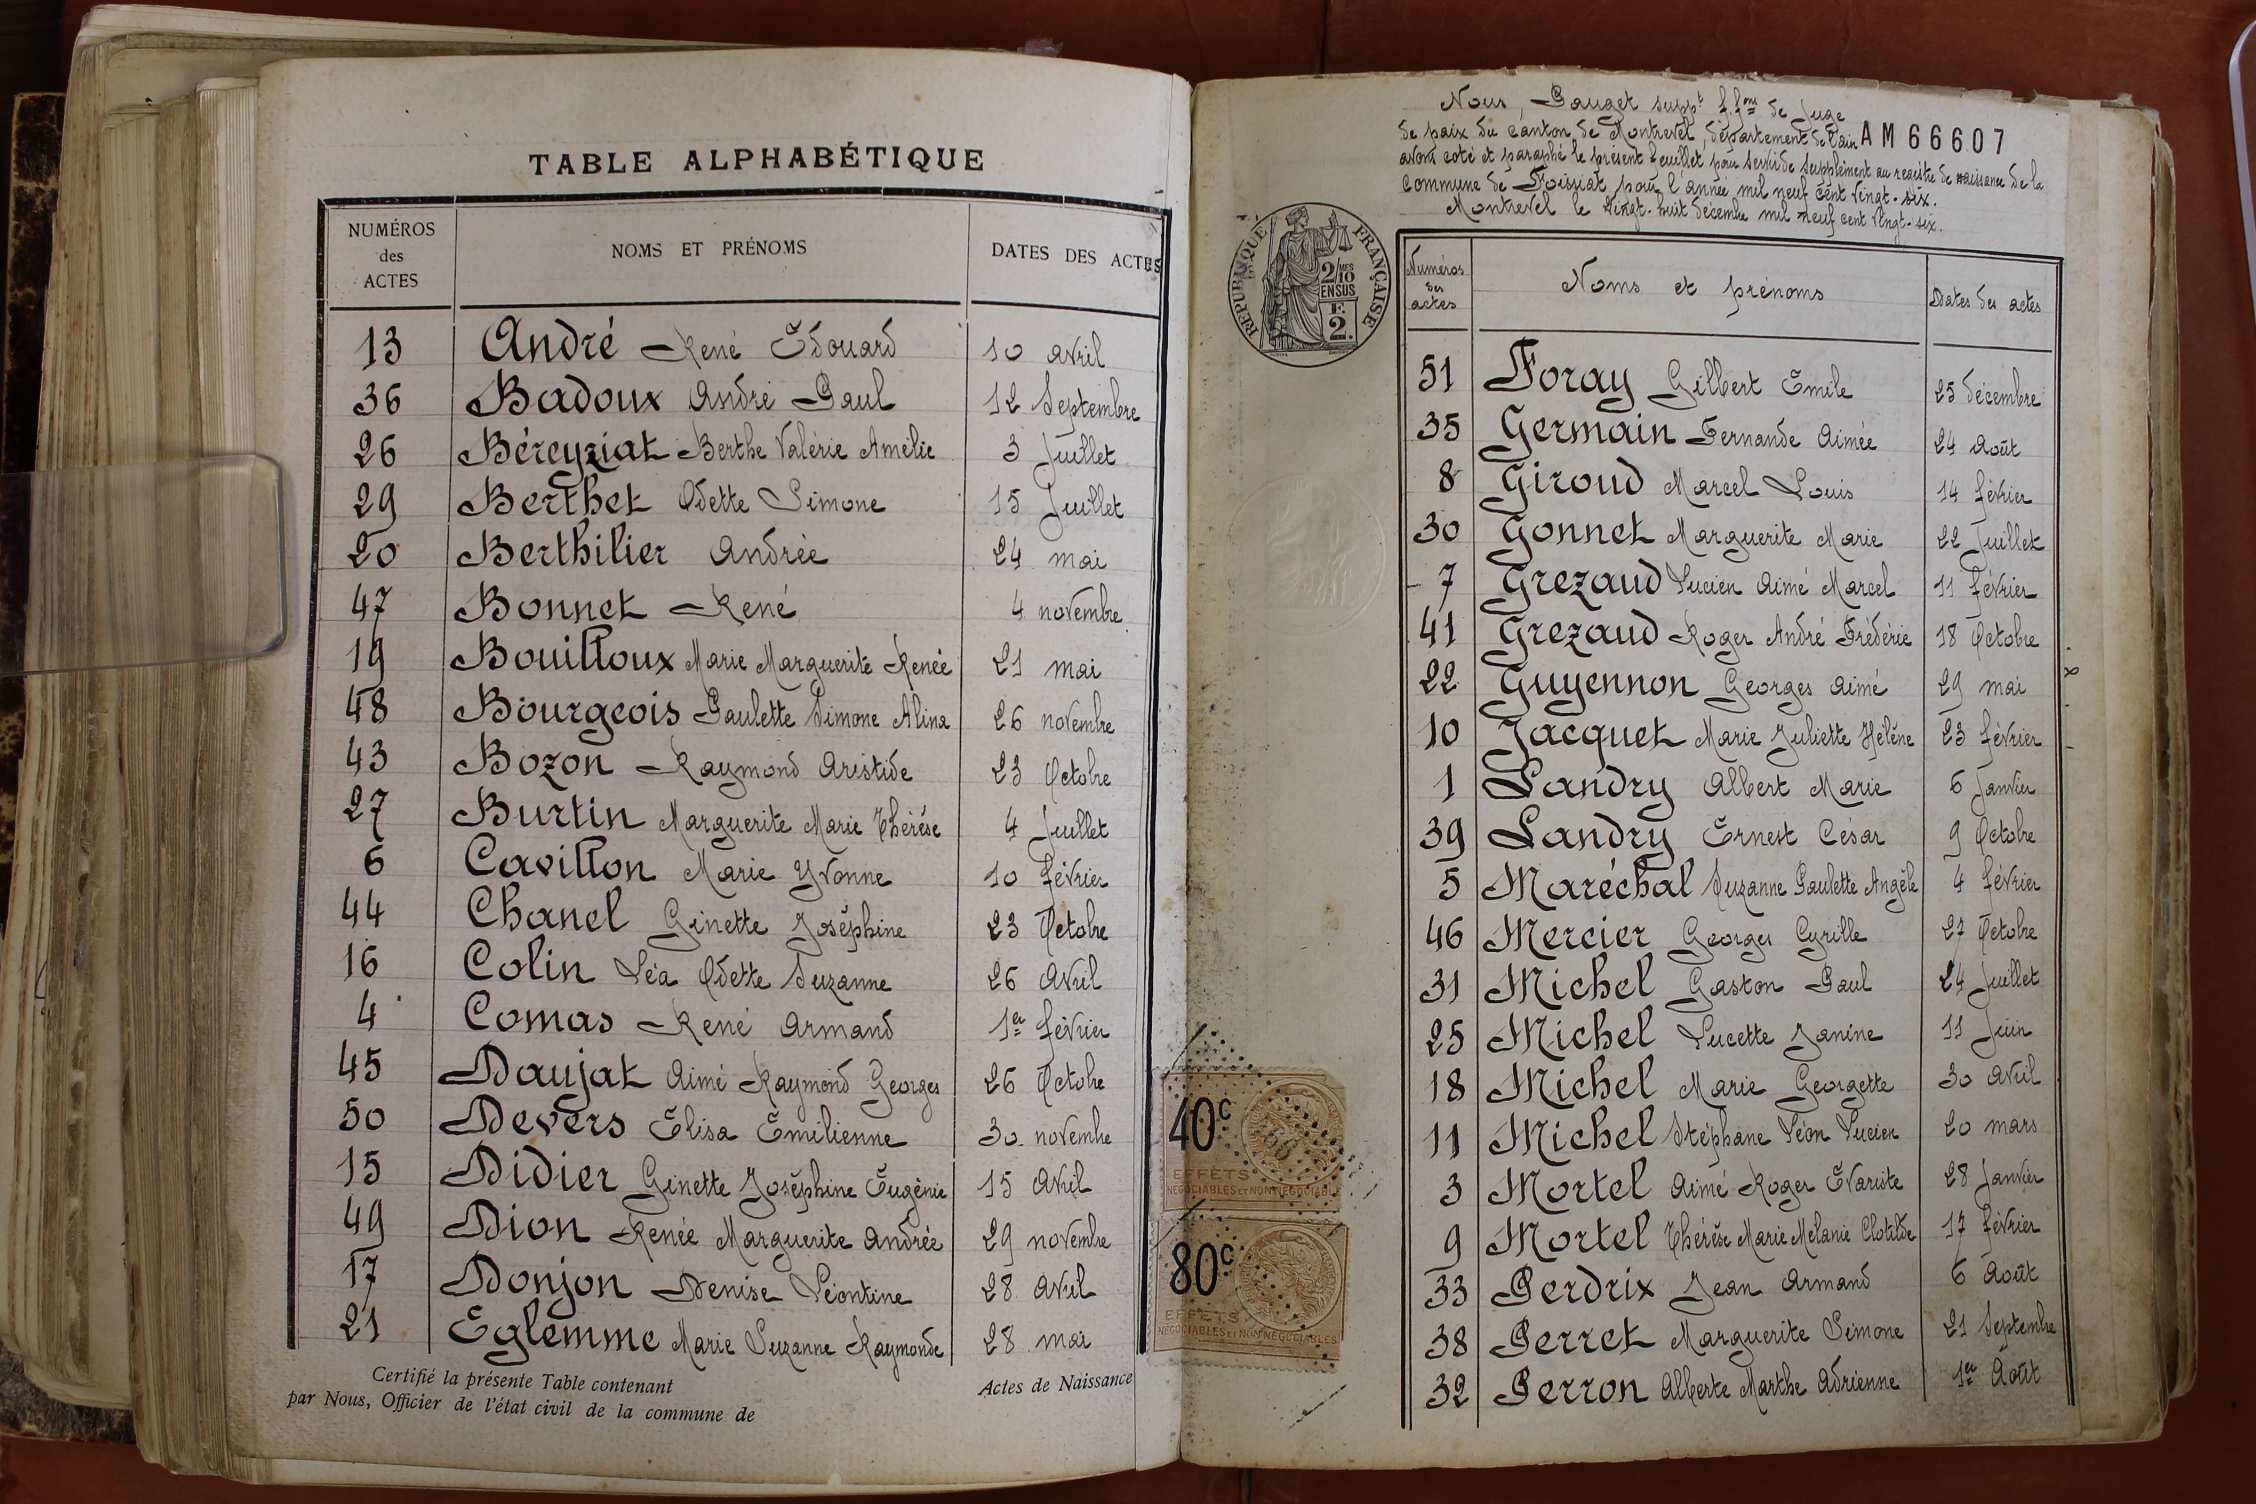 TABLE ALPHABÉTIQUE
NUMÉROS des ACTES NOMS ET PRÉNOMS DATES DES ACTES
13 André René Édouard 10 avril
36 Badoux André Paul 12 Septembre
26 Béreyziat Berthe Valérie Amélie 3 Juillet
29 Berthet Odette Simone 15 Juillet
20 Berthilier Andrée 24 mai
47 Bonnet René 4 novembre
19 Bouilloux Marie Marguerite Renée 21 mai
48 Bourgeois Paulette Simone Alina 26 novembre
43 Bozon Raymond Aristide 23 Octobre
27 Burtin Marguerite Marie Thérèse 4 Juillet
6 Cavillon Marie Yvonne 10 février
44 Chanel Ginette Joséphine 23 Octobre
16 Colin Léa Odette Suzanne 26 Avril
4 Comas René Armand 1er février
45 Daujat Aimé Raymond Georges 26 Octobre
50 Devers Élisa Émilienne 30 novembre
15 Didier Ginette Joséphine Eugénie 15 Avril
49 Dion Renée Marguerite Andrée 29 novembre
17 Donjon Denise Léontine 28 Avril
21 Eglemme Marie Suzanne Raymonde 28 mai
Certifié la présente Table contenant Actes de Naissance
par Nous, Officier de l'état civil de la commune de
Nous, Pauget suppt f.fons de Juge
de paix du canton de Montrevel, département de l'ain
AM66607
avons coté et paraphé le présent feuillet pour servir de supplément au registre de naissance de la
commune de Foissiat pour l'année mil neuf cent vingt-six.
Montrevel le vingt-huit décembre mil neuf cent vingt-six.
RÉPUBLIQUE FRANÇAISE
2/10 MES
EN SUS
F.
2.
Numéros des actes Noms et prénoms Dates des actes
51 Foray Gilbert Emile 25 décembre
35 Germain Fernande Aimée 24 Août
8 Giroud Marcel Louis 14 février
30 Gonnet Marguerite Marie 22 Juillet
7 Grezaud Lucien Aimé Marcel 11 février
41 Grezaud Roger André Frédéric 18 Octobre
22 Guyennon Georges Aimé 29 mai
10 Jacquet Marie Juliette Hélène 23 février
1 Landry Albert Marie 6 Janvier
39 Landry Ernest César 9 Octobre
5 Maréchal Suzanne Paulette Angèle 4 février
46 Mercier Georges Cyrille 27 Octobre
31 Michel Gaston Paul 24 Juillet
25 Michel Lucette Janine 11 Juin
18 Michel Marie Georgette 30 Avril
11 Michel Stéphane Léon Lucien 20 mars
3 Mortel Aimé Roger Évariste 28 Janvier
9 Mortel Thérèse Marie Mélanie Clotilde 17 février
33 Perdrix Jean Armand 6 Août
38 Perret Marguerite Simone 21 Septembre
32 Perron Alberte Marthe Adrienne 1er Août
40c
EFFETS
NÉGOCIABLES ET NON NÉGOCIABLES
80c
EFFETS
NÉGOCIABLES ET NON NÉGOCIABLES